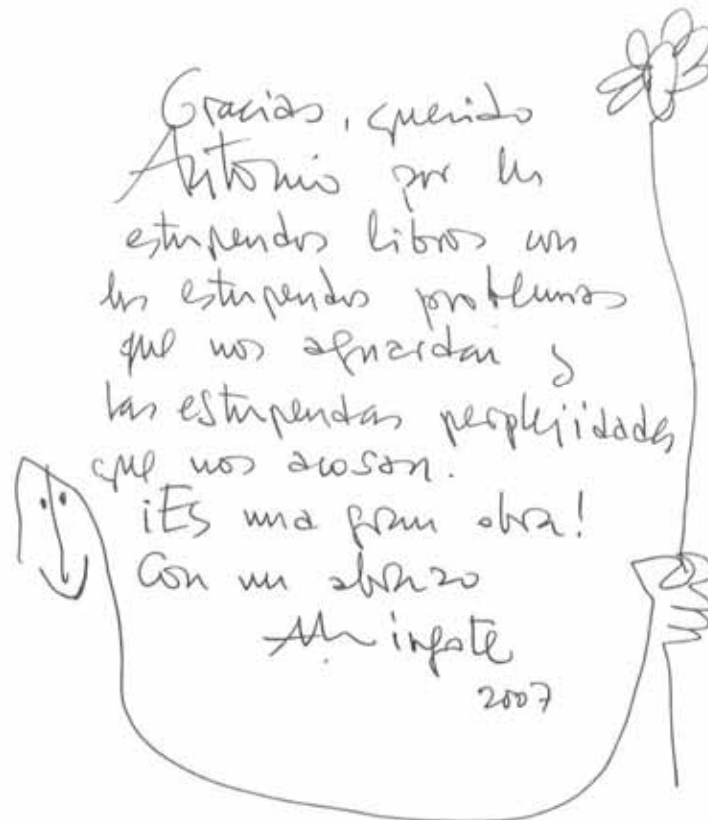 Gracias, querido
Antonio por los
estupendos libros con
los estupendos problemas
que nos aguardan y
las estupendas perplejidades
que nos acosan.
¡Es una gran obra!
Con un abrazo
Mingote
2007